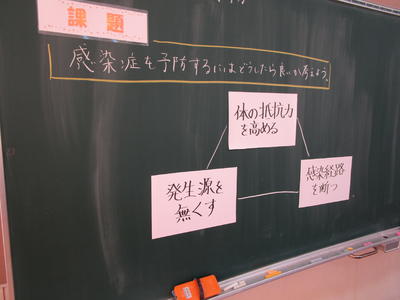 課題
感染症を予防するにはどうしたら良いか考えよう。
体の抵抗力
を高める
発生源を
無くす
感染経路
を断つ